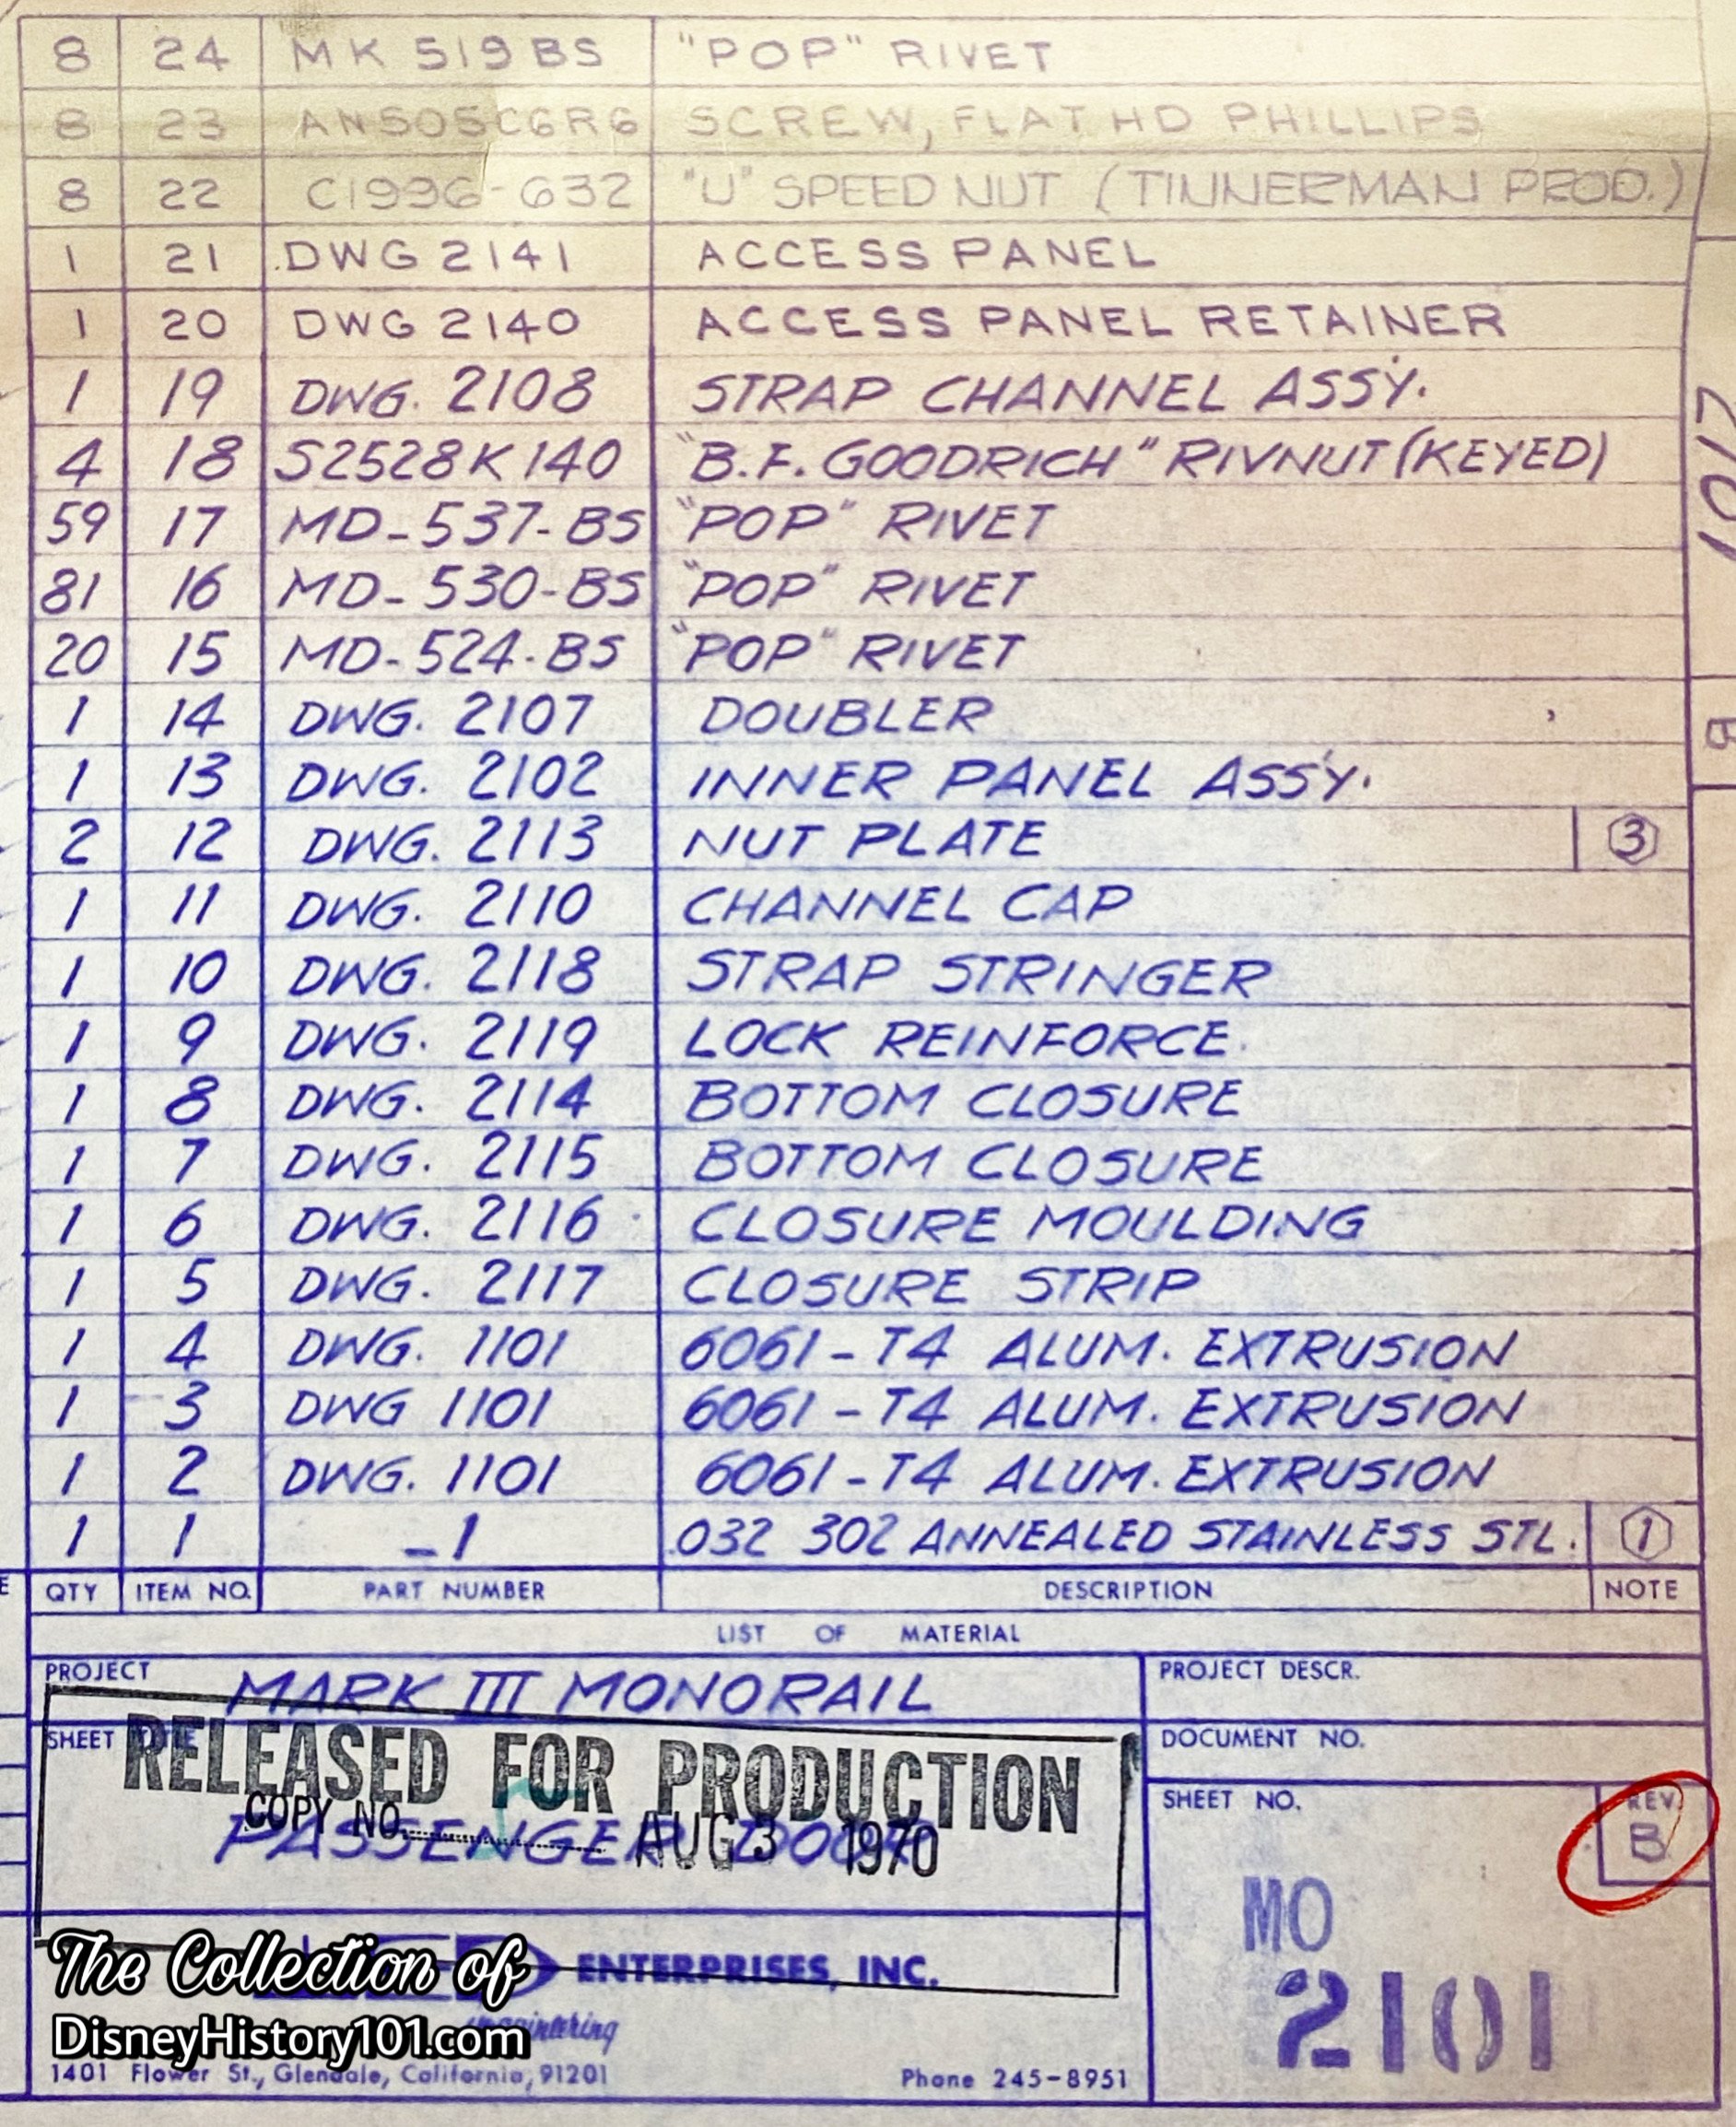 8 24 MK 519 BS "POP" RIVET
8 23 AN505C6R6 SCREW, FLAT HD PHILLIPS
8 22 C1996-632 "U" SPEED NUT (TINNERMAN PROD.)
1 21 DWG 2141 ACCESS PANEL
1 20 DWG 2140 ACCESS PANEL RETAINER
1 19 DWG. 2108 STRAP CHANNEL ASS'Y.
4 18 S2528K140 "B.F. GOODRICH" RIVNUT (KEYED)
59 17 MD-537-BS "POP" RIVET
81 16 MD-530-BS "POP" RIVET
20 15 MD-524-BS "POP" RIVET
1 14 DWG. 2107 DOUBLER
1 13 DWG. 2102 INNER PANEL ASS'Y.
2 12 DWG. 2113 NUT PLATE 3
1 11 DWG. 2110 CHANNEL CAP
1 10 DWG. 2118 STRAP STRINGER
1 9 DWG. 2119 LOCK REINFORCE.
1 8 DWG. 2114 BOTTOM CLOSURE
1 7 DWG. 2115 BOTTOM CLOSURE
1 6 DWG. 2116 CLOSURE MOULDING
1 5 DWG. 2117 CLOSURE STRIP
1 4 DWG. 1101 6061-T4 ALUM. EXTRUSION
1 3 DWG 1101 6061-T4 ALUM. EXTRUSION
1 2 DWG. 1101 6061-T4 ALUM. EXTRUSION
1 1 -1 .032 302 ANNEALED STAINLESS STL. 1
QTY ITEM NO. PART NUMBER DESCRIPTION NOTE
LIST OF MATERIAL
PROJECT MARK III MONORAIL
PROJECT DESCR.
SHEET TITLE
RELEASED FOR PRODUCTION
COPY NO. AUG 3 1970
PASSENGER DOOR
DOCUMENT NO.
SHEET NO.
REV.
B
MO
2101
ENTERPRISES, INC.
The Collection of
DisneyHistory101.com
1401 Flower St., Glendale, California, 91201
Phone 245-8951